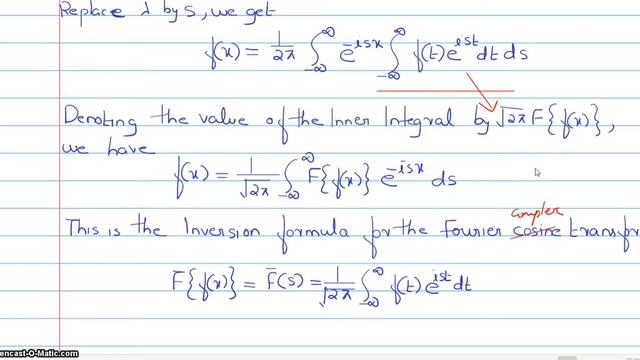 Replace λ by s, we get
f(x) = 1/2π ∫_{-∞}^{∞} e^{-isx} ∫_{-∞}^{∞} f(t) e^{ist} dt ds
Denoting the value of the Inner Integral by √2π F{f(x)},
we have
f(x) = 1/√2π ∫_{-∞}^{∞} F{f(x)} e^{-isx} ds
complex
This is the Inversion formula for the Fourier cosine transfor
F{f(x)} = F̄(s) = 1/√2π ∫_{-∞}^{∞} f(t) e^{ist} dt
encast-O-Matic.com